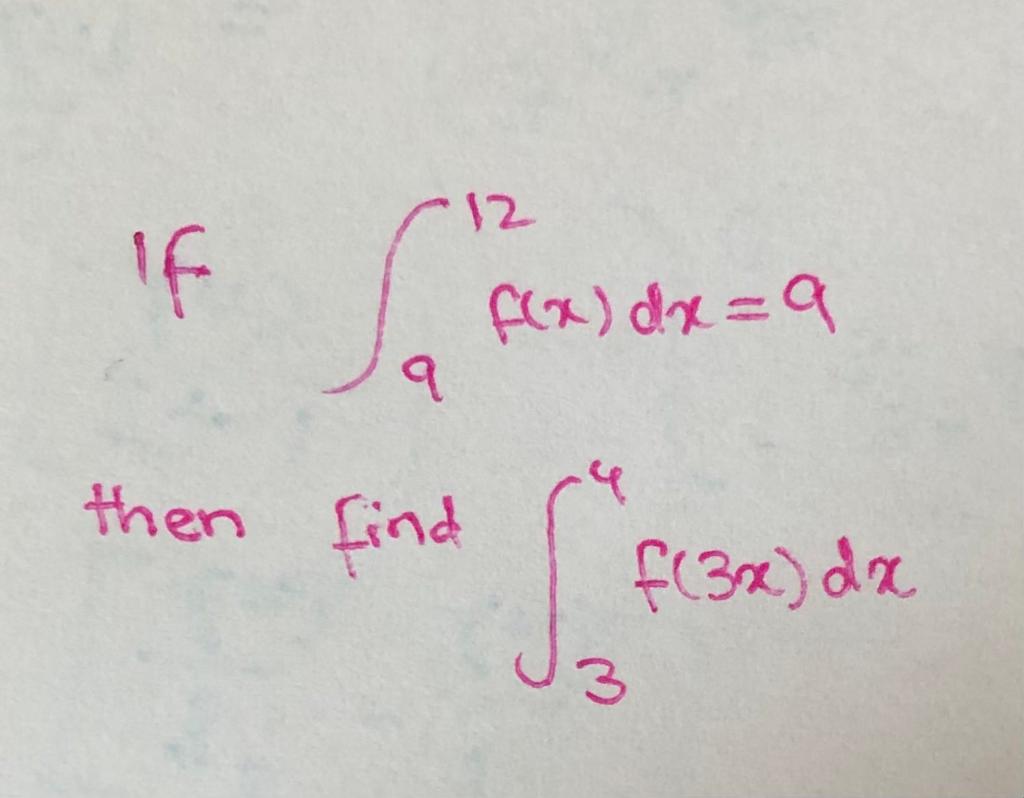 If ∫₉¹² f(x) dx = 9
then find ∫₃⁴ f(3x) dx